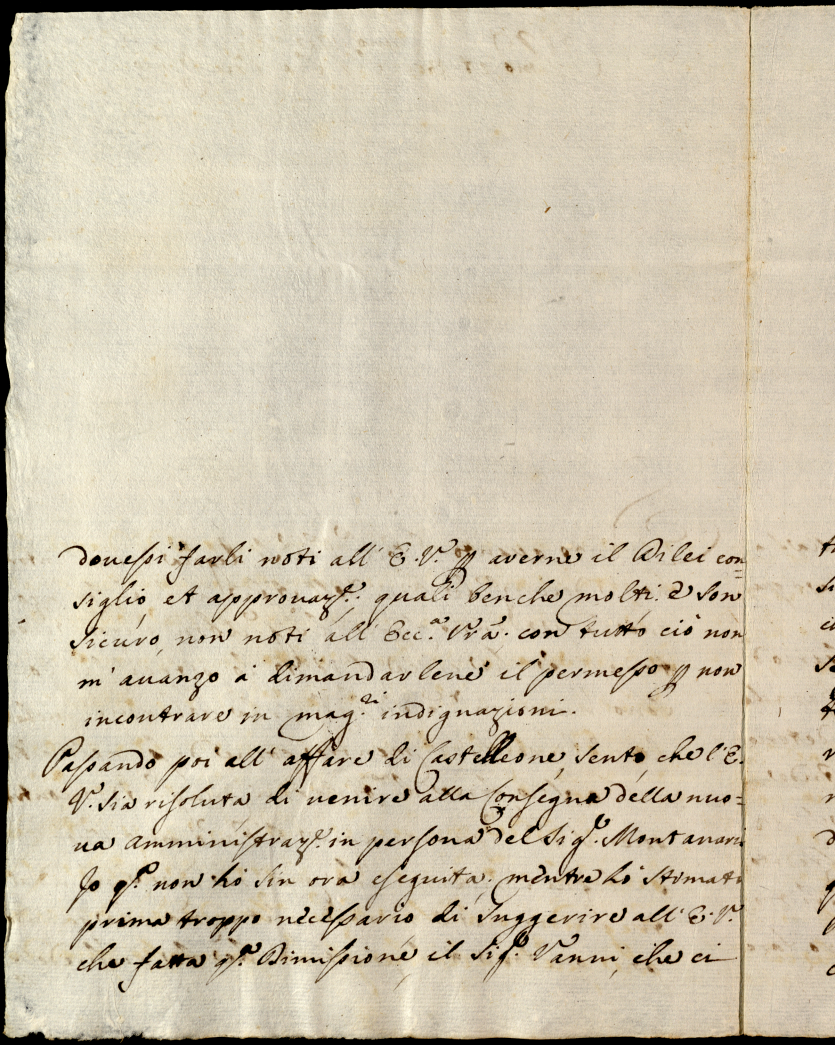 douessi farli noti all' E. V. p averne il Di lei con=
siglio, et approuaz.e: quali benche molti, e son
sicuro, non noti all' Ecc.a Vrã. con tutto ciò non
m' auanzo à dimandarlene il permesso p non
incontrare in mag.ri indignazioni.
Passando poi all' affare di Castelleone, sento, che l' E.
V. sia risoluta di uenire alla Consegna della nuo=
ua amministraz.e in persona del Sig.r Montanari
Io q.ta non hò sin ora eseguita, mentre hò stimato
prima troppo necessario di suggerire all' E. V.
che fatta q.ta Dimissione il Sig.r Vanni, che ci